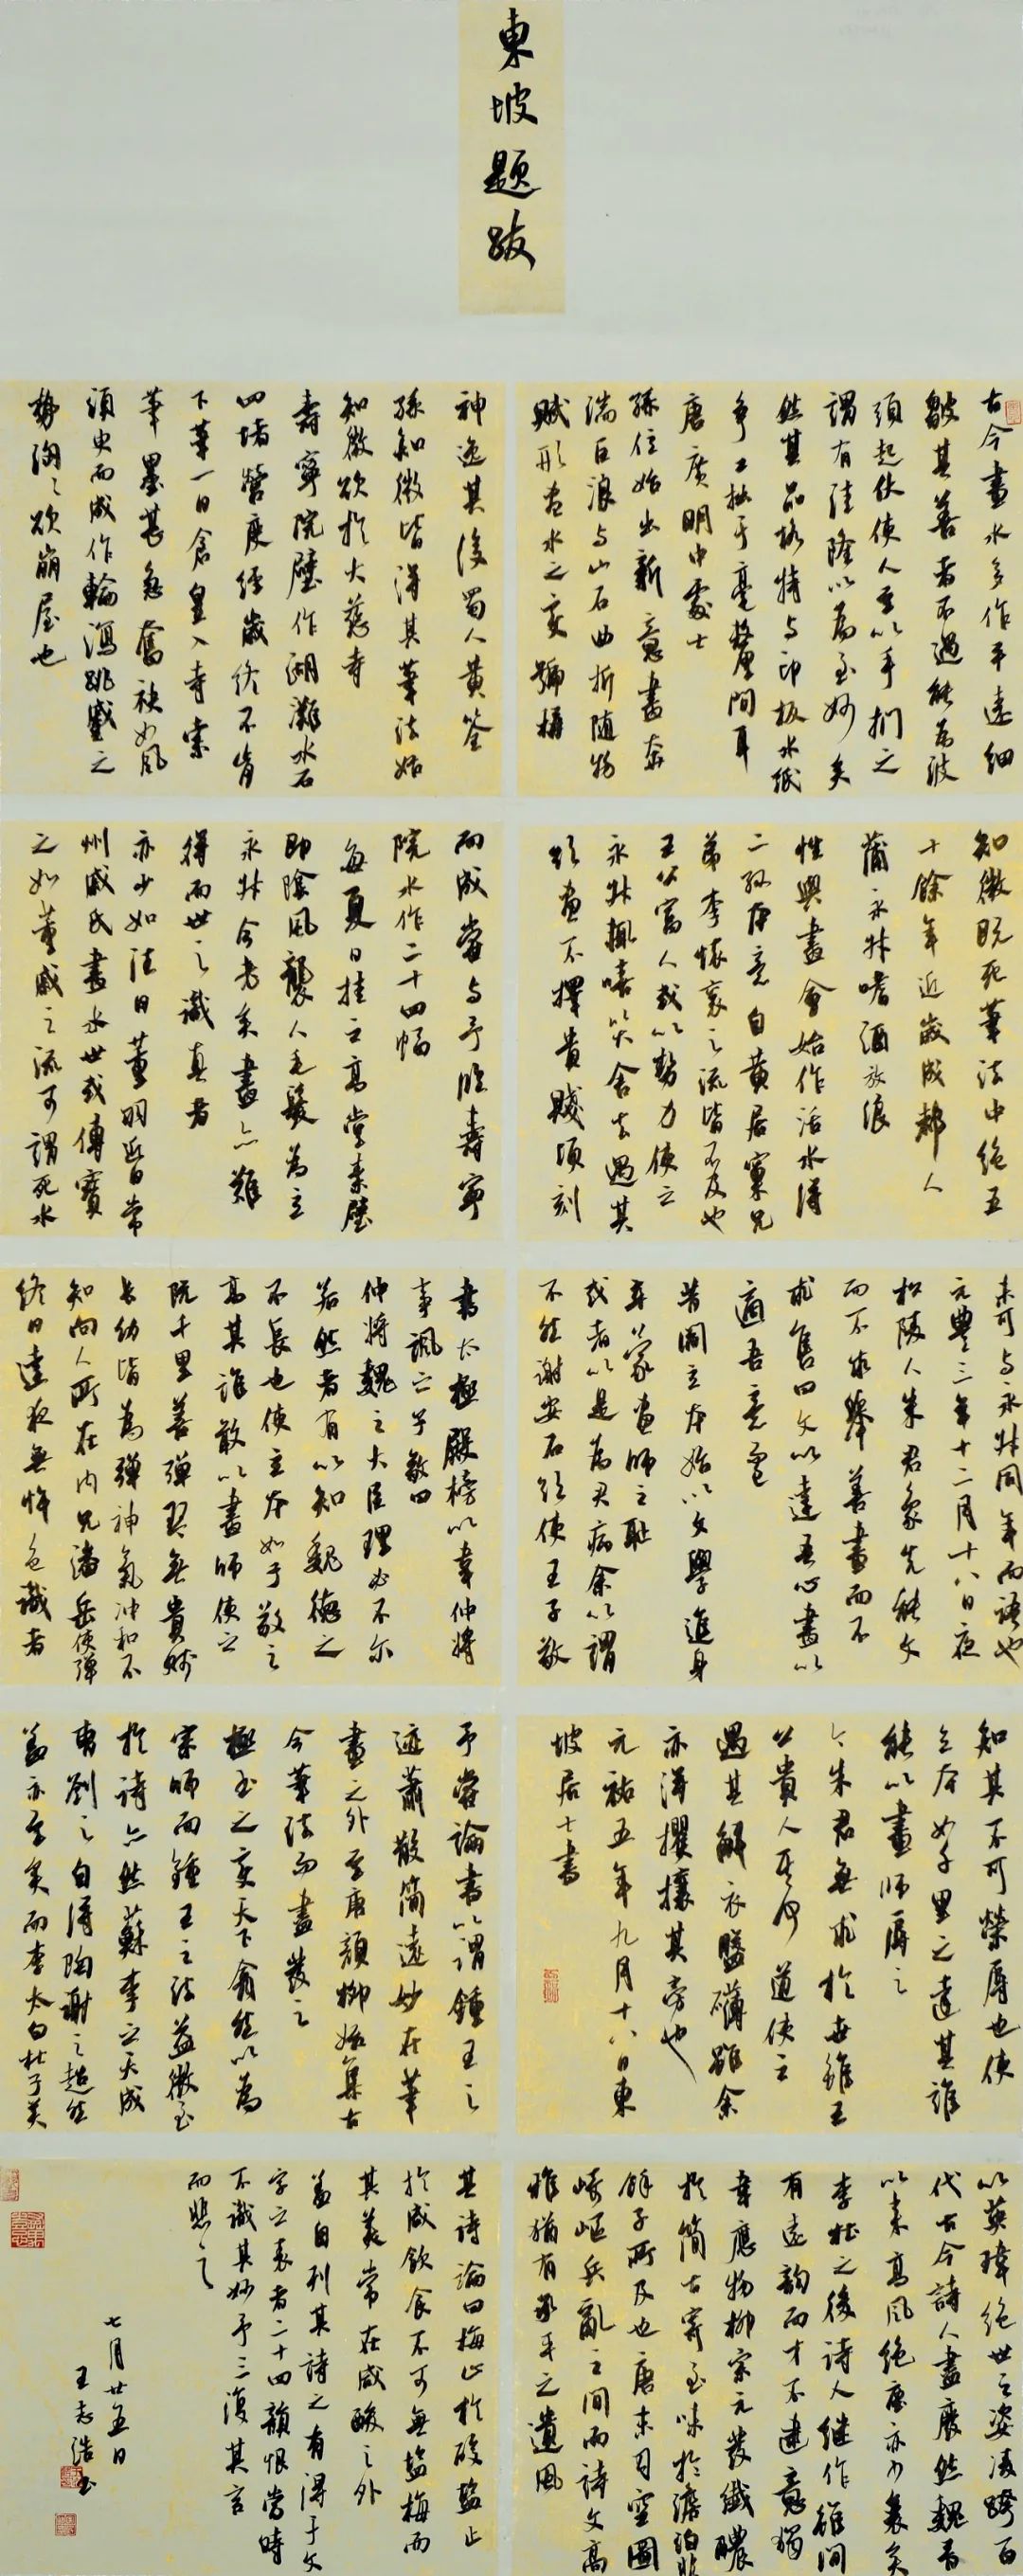 東坡題跋
古今畫水多作平遠細
皺其善者不過能為波
頭起伏使人至以手捫之
謂有窪隆以為至妙矣
然其品格特与印板水紙
争工拙于毫釐間耳
唐廣明中處士
孫位始出新意畫奔
湍巨浪与山石曲折隨物
賦形盡水之変號稱
神逸其後蜀人黄筌
孫知微皆得其筆法始
知微欲於大慈寺
壽寧院壁作湖灘水石
四堵營度經歲終不肯
下筆一日倉皇入寺索
筆墨甚急奮袂如風
須臾而成作輪瀉跳蹙之
勢洶洶欲崩屋也
知微既死筆法中絶五
十餘年近歲成都人
蒲永昇嗜酒放浪
性與畫會始作活水得
二孫本意自黄居寀兄
弟李懷衮之流皆不及也
王公富人或以勢力使之
永昇輒嘻笑舍去遇其
欲畫不擇貴賤頃刻
而成嘗与予臨壽寧
院水作二十四幅
每夏日挂之高堂素壁
即陰風襲人毛髮為立
永昇今老矣畫亦難
得而世之識真者
亦少如往日董羽近日常
州戚氏畫水世或傳寶
之如董戚之流可謂死水
未可与永昇同年而語也
元豐三年十二月十八日夜
松陵人朱君象先能文
而不求舉善畫而不
求售曰文以達吾心畫以
適吾意而已
昔閻立本始以文學進身
卒蒙畫師之恥
或者以是為君病余以謂
不然謝安石欲使王子敬
書太極殿榜以韋仲將
事諷之子敬曰
仲將魏之大臣理必不尔
若然者有以知魏德之
不長也使立本如子敬之
高其誰敢以畫師使之
阮千里善彈琴無貴賤
長幼皆為彈神氣冲和不
知向人所在内兄潘岳使彈
終日達夜無忤色識者
知其不可榮辱也使
立本如千里之達其誰
能以畫師辱之
今朱君無求於世雖王
公貴人其何道使之
遇其解衣盤礴雖余
亦得攫攘其旁也
元祐五年九月十八日東
坡居士書
予嘗論書以謂鍾王之
迹蕭散簡遠妙在筆
畫之外至唐顏柳始集古
今筆法而盡發之
極書之変天下翕然以為
宗師而鍾王之法益微至
於詩亦然蘇李之天成
曹劉之自得陶謝之超然
蓋亦至矣而李太白杜子美
以英瑋絶世之姿凌跨百
代古今詩人盡廢然魏晉
以来高風絶塵亦少衰矣
李杜之後詩人繼作雖間
有遠韵而才不逮意獨
韋應物柳宗元發纖穠
於簡古寄至味於澹泊非
餘子所及也唐末司空圖
崎嶇兵亂之間而詩文高
雅猶有承平之遺風
其詩論曰梅止於酸鹽止
於咸飲食不可無鹽梅而
其美常在咸酸之外
蓋自列其詩之有得于文
字之表者二十四韻恨當時
不識其妙予三復其言
而悲之
七月廿五日
王志浩書